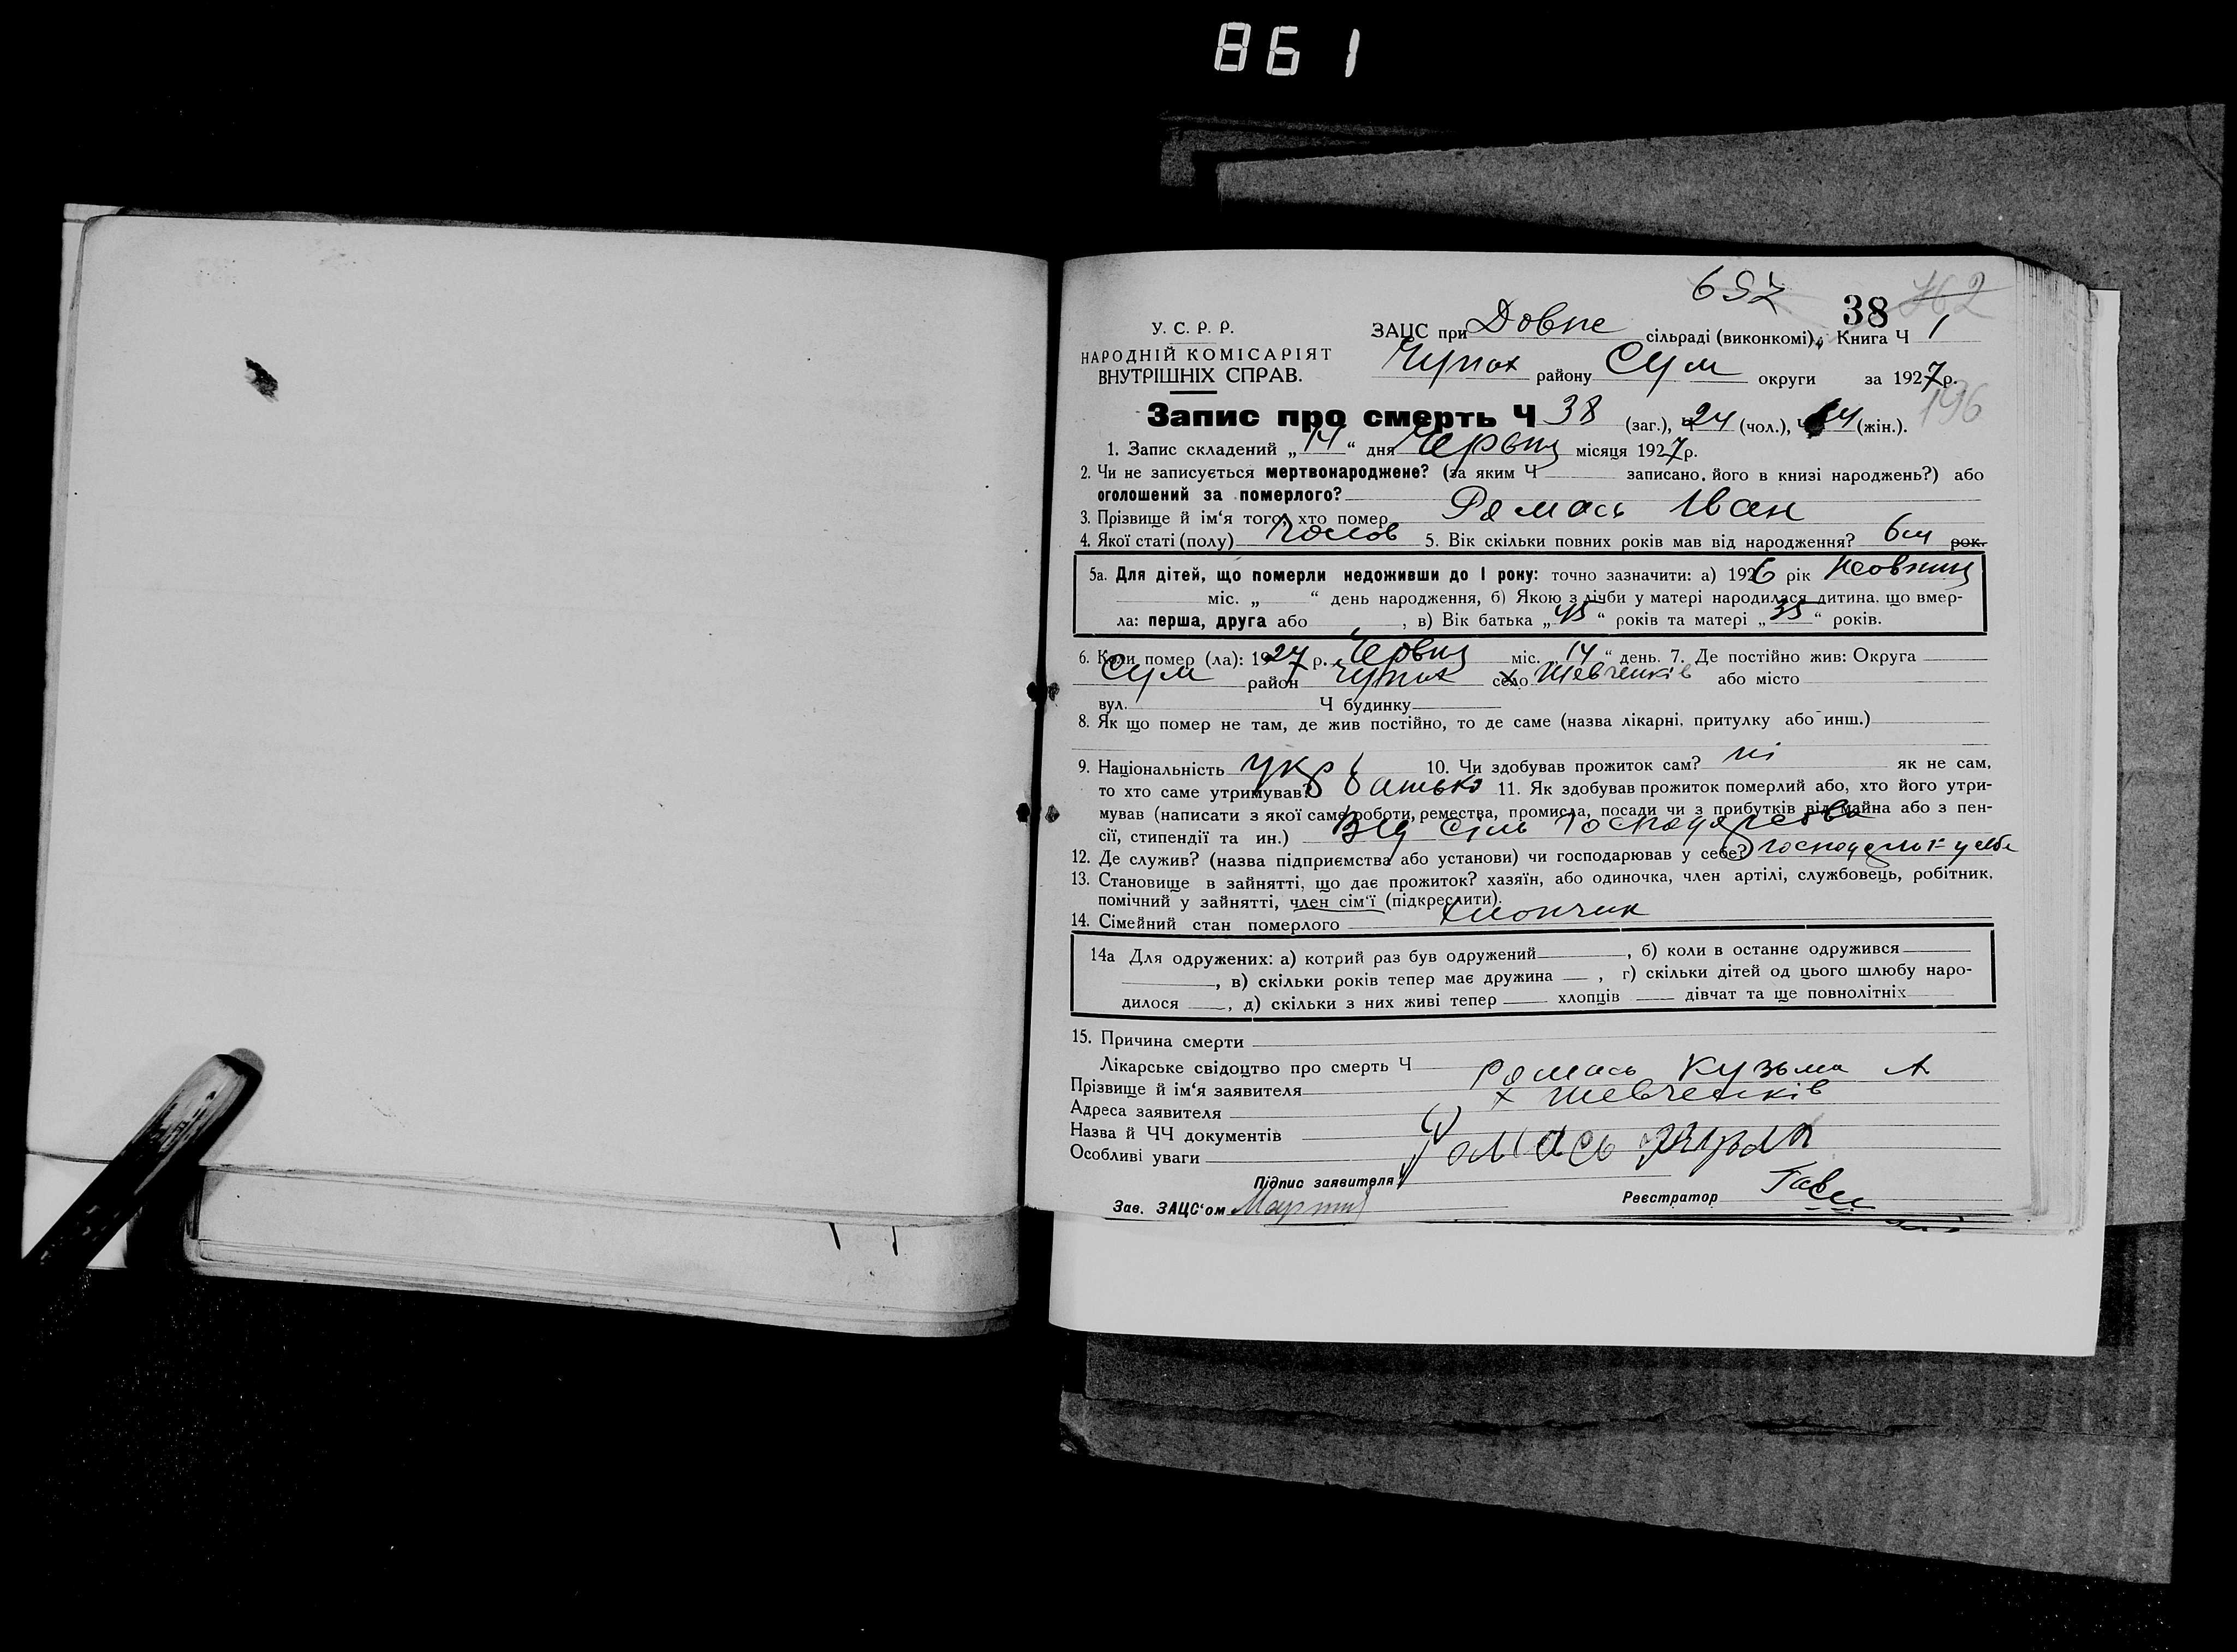 861
697
38 762
У. С. Р. Р.
ЗАЦС при Довпе сільраді (виконкомі), Книга Ч 1
НАРОДНІЙ КОМІСАРІЯТ
ВНУТРІШНІХ СПРАВ.
Чупах району Сум округи за 1927 р.
196
Запис про смерть Ч 38 (заг.), Ч 24 (чол.), Ч 14 (жін.).
1. Запис складений „ 14 “ дня Червня місяця 1927 р.
2. Чи не записується мертвонароджене? (за яким Ч записано, його в книзі народжень?) або
оголошений за померлого?
3. Прізвище й ім‘я того, хто помер Ромась Іван
4. Якої статі (полу) Чолов 5. Вік скільки повних років мав від народження? 6 м рок.
5а. Для дітей, що померли недоживши до I року: точно зазначити: а) 1926 рік Жовтня
міс. „ “ день народження, б) Якою з лічби у матері народилася дитина, що вмер-
ла: перша, друга або , в) Вік батька „ 45 “ років та матері „ 35 “ років.
6. Коли помер (ла): 1927 р. Червня міс. „ 14 “ день. 7. Де постійно жив: Округа
Сум район Чупах село х Шевченків або місто
вул. Ч будинку
8. Як що помер не там, де жив постійно, то де саме (назва лікарні, притулку або инш.)
9. Національність укр 10. Чи здобував прожиток сам? ні як не сам,
то хто саме утримував? батько 11. Як здобував прожиток померлий або, хто його утри-
мував (написати з якої саме роботи, ремества, промисла, посади чи з прибутків від майна або з пен-
сії, стипендії та ин.) Від сіль господарства
12. Де служив? (назва підприємства або установи) чи господарював у себе?
13. Становище в зайнятті, що дає прожиток? хазяїн, або одиночка, член артілі, службовець, робітник,
помічний у зайнятті, член сім‘ї (підкреслити).
14. Сімейний стан померлого хлопчик
14а Для одружених: а) котрий раз був одружений , б) коли в останнє одружився
, в) скільки років тепер має дружина , г) скільки дітей од цього шлюбу наро-
дилося , д) скільки з них живі тепер хлопців дівчат та ще повнолітніх
15. Причина смерти
Лікарське свідоцтво про смерть Ч
Прізвище й ім‘я заявителя Ромась Кузьма А
Адреса заявителя х Шевченків
Назва й ЧЧ документів
Особливі уваги
Підпис заявителя Ромась
Зав. ЗАЦС‘ом Реєстратор